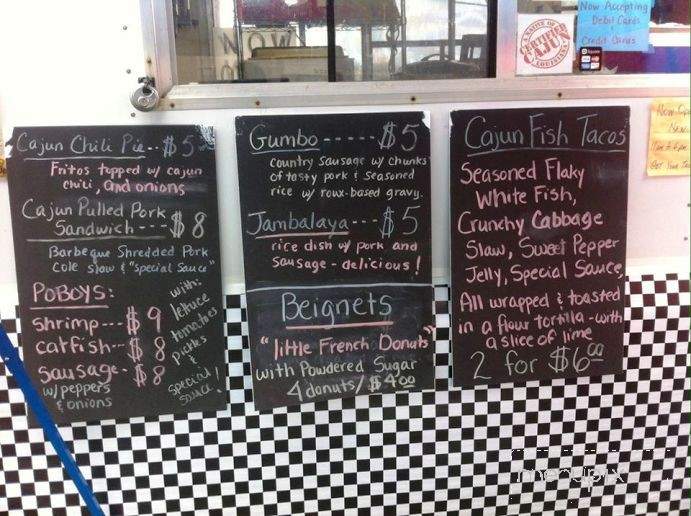 Cajun Chili Pie -- $5
Fritos topped w/ cajun
chili, and onions
Cajun Pulled Pork
Sandwich ---- $8
Barbeque Shredded Pork
Cole slaw & "special sauce"
POBOYS:
shrimp --- $9
catfish -- $8
sausage - $8
w/ peppers
& onions
with:
lettuce
tomatoes
pickles
&
special
sauce!
Gumbo ----- $5
country sausage w/ chunks
of tasty pork & seasoned
rice w/ roux-based gravy.
Jambalaya --- $5
rice dish w/ pork and
sausage - delicious!
Beignets
"little French Donuts"
with Powdered Sugar
4 donuts/$4.00
Cajun Fish Tacos
Seasoned Flaky
White Fish,
Crunchy Cabbage
Slaw, Sweet Pepper
Jelly, Special Sauce,
All wrapped & toasted
in a flour tortilla - with
a slice of lime
2 for $6.00
NOW
CERTIFIED
CAJUN
LOUISIANA
Now Accepting
Debit Cards
&
Credit Cards
Square
menupix